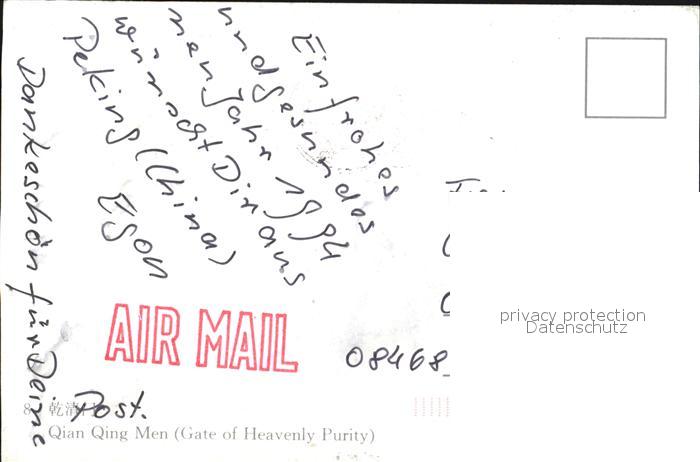 Ein frohes
und gesundes
neu Jahr 1994
wünscht Dir aus
Peking (China)
Egon
Dankeschön für Deine
Post.
AIR MAIL
08468
privacy protection
Datenschutz
8 乾清
Qian Qing Men (Gate of Heavenly Purity)